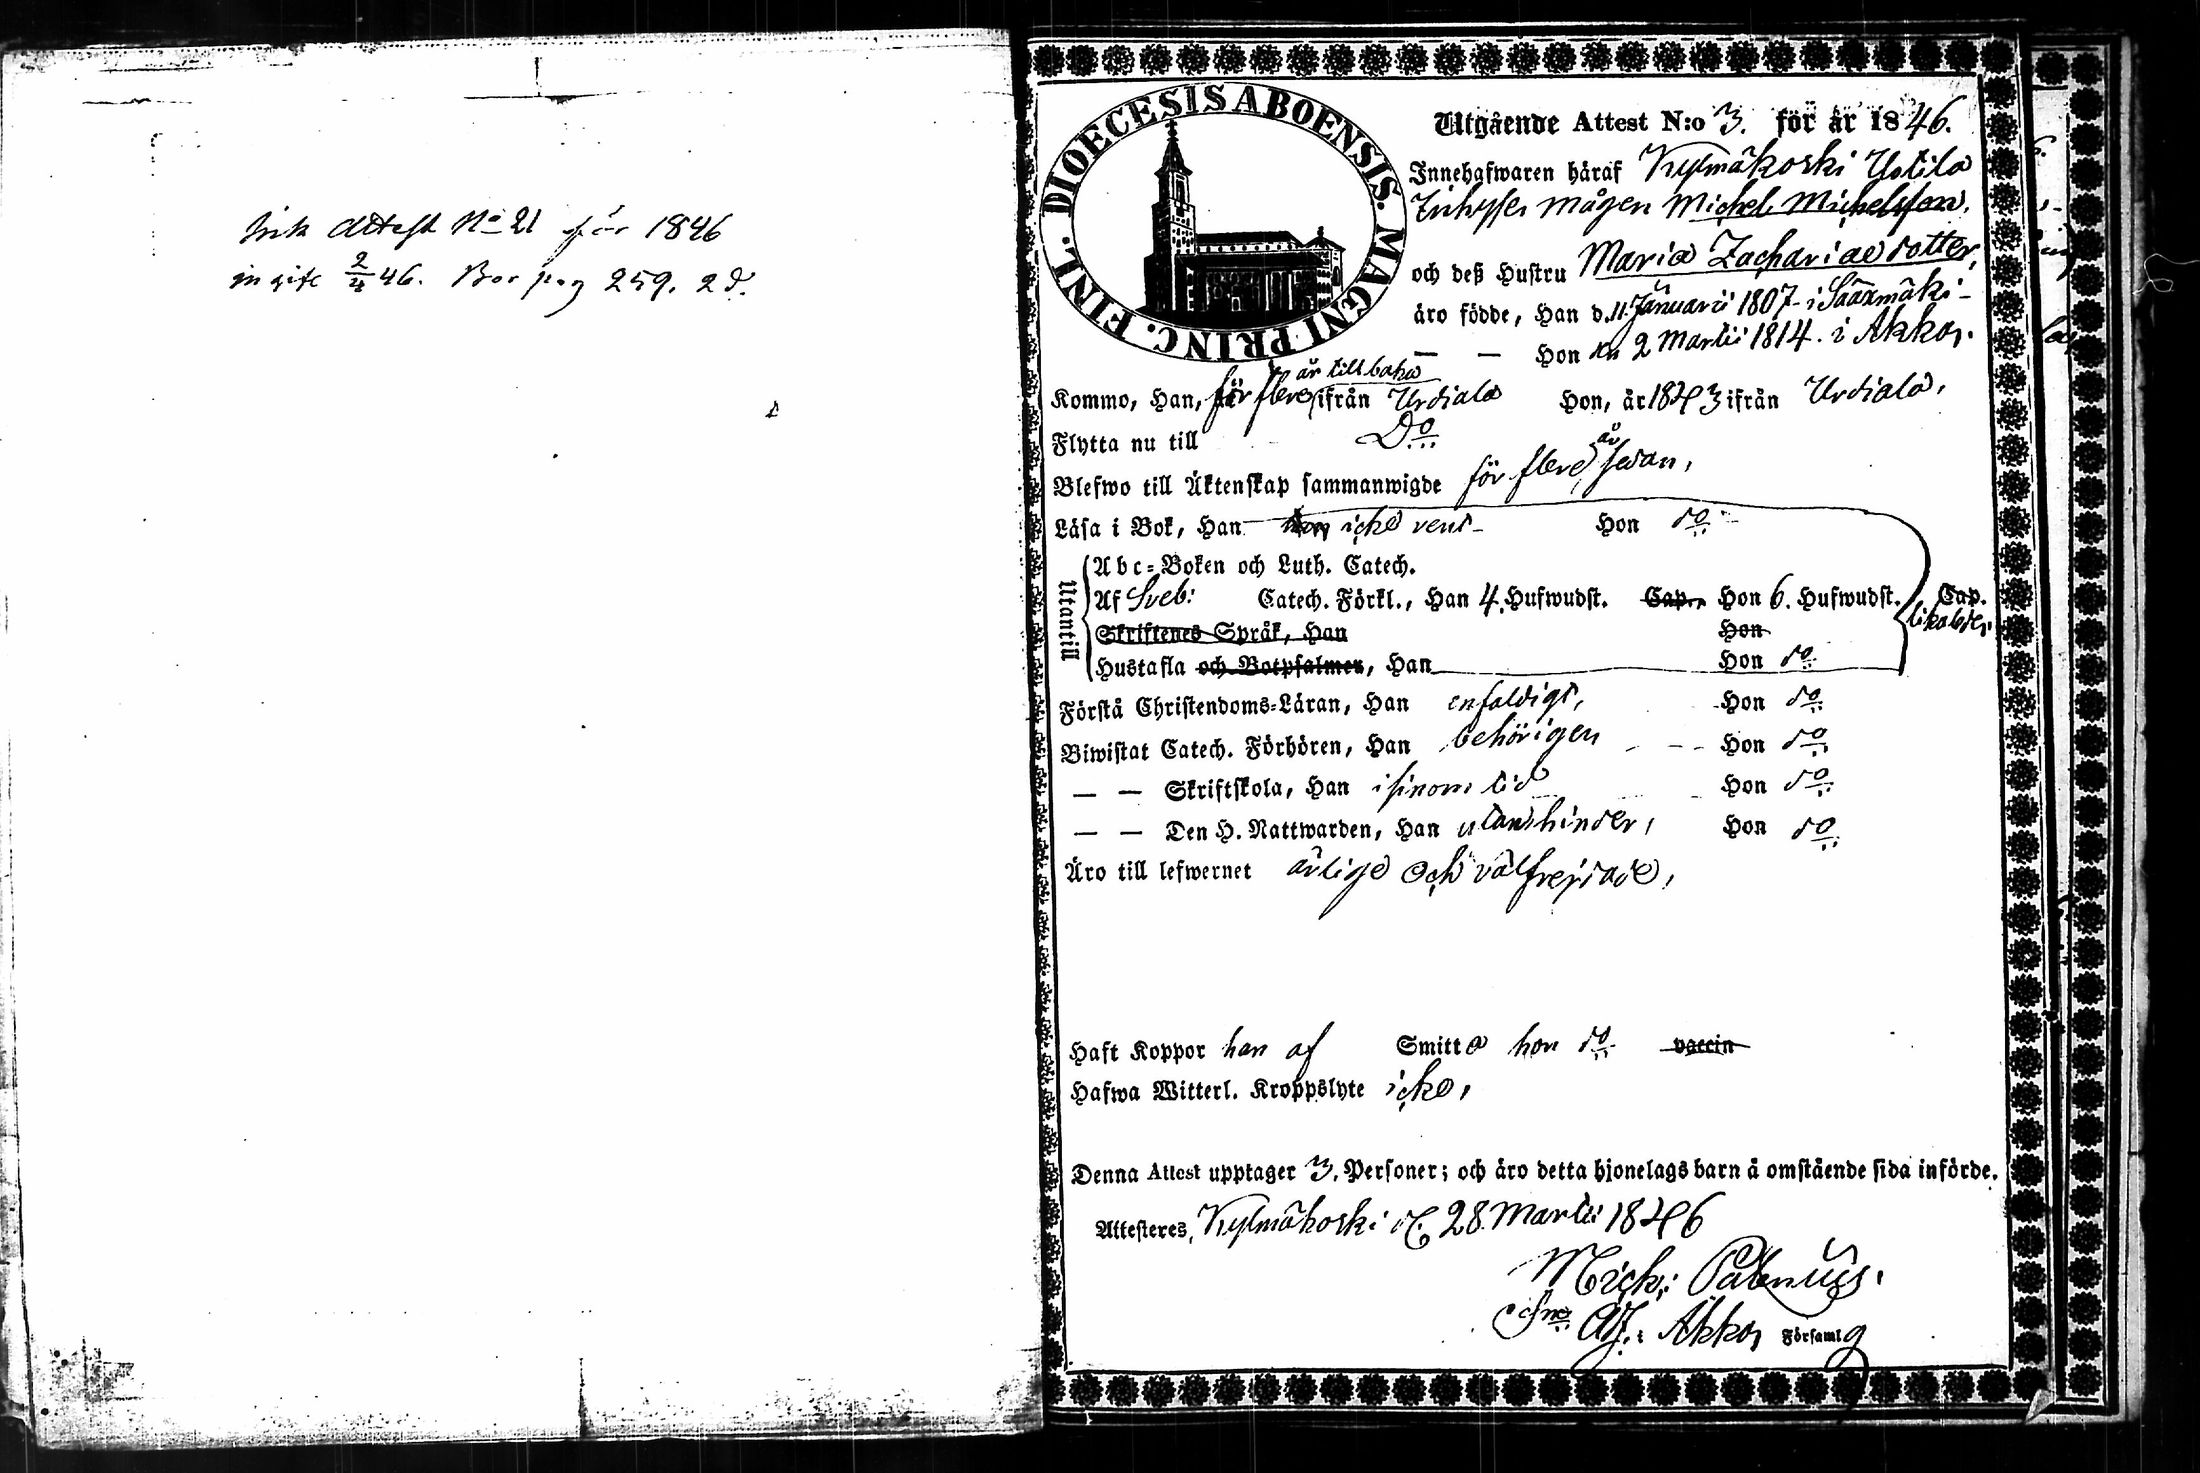 Attest No 21 för 1846
2/4 46. Bor pag 259. 2 d.
DIOECESIS ABOENSIS. MAGNI PRINC. FINL.
Utgående Attest N:o 3. för år 1846.
Innehafwaren häraf Kylmäkoski Yotila
Inhyses mågen Michel Michelsson,
och deß Hustru Maria Zachariae dotter,
äro födde, Han d. 11 Januarii 1807 i Sääxmäki
— — Hon den 2 Martii 1814. i Akkas.
Kommo, Han, för flere år tillbaka ifrån Urdiala Hon, år 1843 ifrån Urdiala,
Flytta nu till Do
Blefwo till Äktenskap sammanwigde för flere år sedan,
Läsa i Bok, Han icke rent Hon do
Utantill
Abc-Boken och Luth. Catech.
Af Sveb: Catech. Förkl., Han 4. Hufwudst. Cap., Hon 6. Hufwudst. Cap.
Skriftenes Språk, Han Hon
Hustafla och Botpsalmer, Han Hon do
Förstå Christendoms-Läran, Han enfaldigt, Hon do
Biwistat Catech. Förhören, Han behörigen Hon do
— — Skriftskola, Han i sinom tid Hon do
— — Den H. Nattwarden, Han utan hinder, Hon do
Äro till lefwernet ärlige och välfrejdade,
Haft Koppor han af Smitta hon do vaccin
Hafwa Witterl. Kroppslyte icke,
Denna Attest upptager 3. Personer; och äro detta hjonelags barn å omstående sida införde.
Attesteres, Kylmäkoski d. 28 Martii 1846
Mich: Palenius.
Adj. i Akkas Församlg